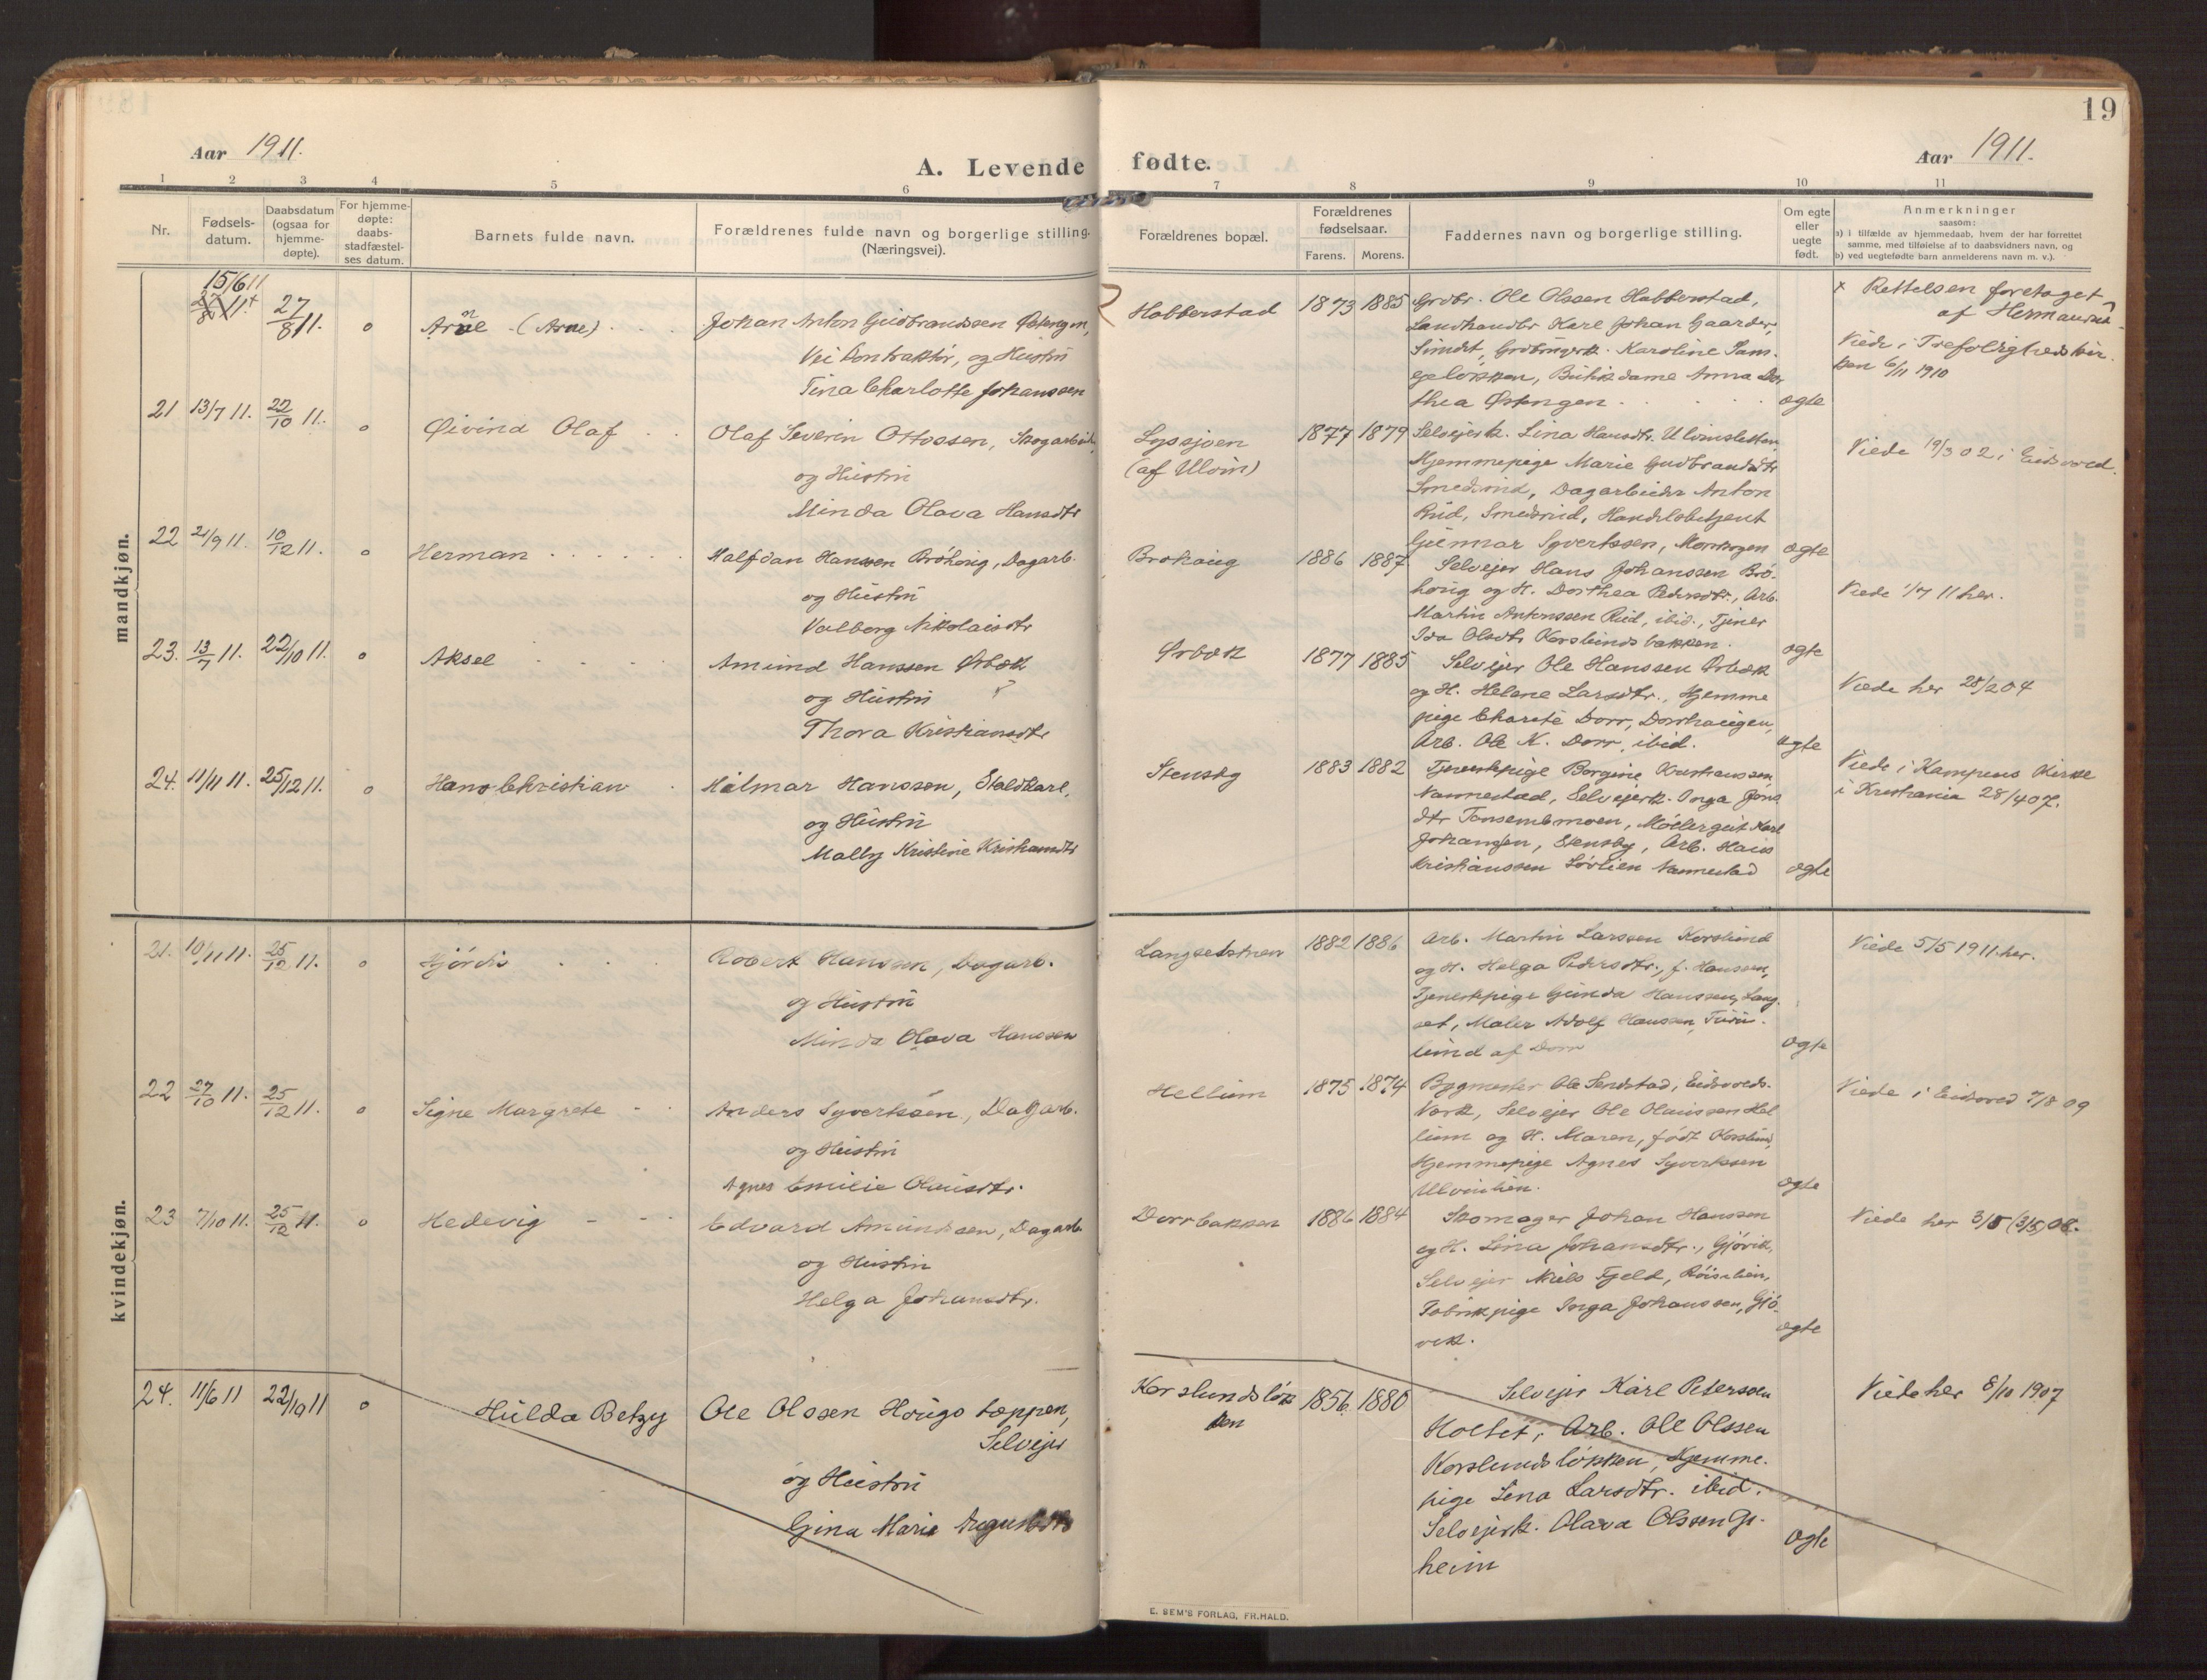 19
Aar 1911.
A. Levende fødte.
Aar 1911.
1 2 3 4 5 6 7 8 9 10 11
Nr.
Fødsels-
datum.
Daabsdatum
(ogsaa for
hjemme-
døpte).
For hjemme-
døpte:
daabs-
stadfæstel-
ses datum.
Barnets fulde navn.
Forældrenes fulde navn og borgerlige stilling.
(Næringsvei).
Forældrenes bopæl.
Forældrenes
fødselsaar.
Farens. Morens.
Faddernes navn og borgerlige stilling.
Om egte
eller
uegte
født.
Anmerkninger
saasom:
a) i tilfælde av hjemmedaab, hvem der har forrettet
samme, med tilføielse af to daabsvidners navn, og
b) ved uegtefødte barn anmelderens navn m. v.).
mandkjøn.
15/6 11
27/8 11.
o
Arne (Arne)
Johan Anton Gudbrandssen Østengen,
Vei Kontraktør, og Hustru
Tina Charlotte Johanssen
Habberstad
1873 1885
Grdbr. Ole Olssen Habberstad,
Landhandler Karl Johan Gaarder,
Sundet, Grdbrugersk. Karoline
Butikdame Anna Do
thea Østengen
ægte
x Rettelsen foretaget
af Hermansen
Viede i Trefoldighedskir
ken 6/11 1910
21 13/7 11. 22/10 11. o
Øivind Olaf
Olaf Severin Ottossen, Skogarbeid.
og Hustru
Minda Olava Hansdtr
Lyssjøen
(af Ulvin)
1877 1879
Selvejersk. Lina Hansdtr. Ulvinsletten
Hjemmepige Marie Gudbrandsdtr
Smedsrud, Dagarbeider Anton
Rud, Smedsrud, Handelsbetjent
Gunnar Syvertssen, Morskogen
ægte
Viede 19/3 02 i Eidsvold.
22 21/9 11. 10/12 11. o
Herman
Halfdan Hanssen Bröhaug, Dagarb.
og Hustru
Valborg Nikolaisdtr
Brohaug
1886 1887
Selvejer Hans Johanssen Brö-
haug og H. Dorthea Pedersdtr., Arb.
Martin Antonssen Rud, ibid., Tjener
Ida Olsdtr Korslundsbakken.
ægte
Viede 1/7 11 her.
23. 13/7 11. 22/10 11. o
Aksel
Amund Hanssen Ørbæk
og Hustru
Thora Kristiansdtr
Ørbæk
1877 1885
Selvejer Ole Hanssen Ørbæk
og H. Helene Larsdtr., Hjemme
pige Charite Dorr, Dorrhaugen,
Arb. Ole K. Dorr, ibid.
ægte
Viede her 28/2 04
24. 11/11 11. 25/12 11. o
Hans Christian
Hilmar Hanssen, Staldkarl,
og Hustru
Mally Kristine Kristiansdtr
Stensby
1883 1882
Tjenestepige Borgine Kristianssen
Nannestad, Selvejersk. Inga Jens
dtr Tønsembmoen, Møllergut Karl
Johanssen, Stensby, Arb. Hans
Kristianssen Sørlien Nannestad
ægte
Viede i Kampens Kirke
i Kristiania 28/4 07.
kvindekjøn.
21. 10/11 11. 25/12 11. o
Hjördis
Robert Hanssen, Dagarb.
og Hustru
Minda Olava Hanssen
Langsetstuen
1882 1886
Arb. Martin Larssen Korslund
og H. Helga Pedersdtr., f. Hanssen,
Tjenestpige Gunda Hanssen, Lang
set, Maler Adolf Hanssen,
lund af Dorr
ægte
Viede 5/5 1911 her.
22 27/10 11. 25/12 11. o
Signe Margrete
Anders Syvertssen, Dagarb.
og Hustru
Agnes Emilie Olausdtr.
Hellum
1875 1874
Bygmester Ole Sendstad, Eidsvolds-
Værk, Selvejer Ole Olaussen Hel
lum og H. Maren, født Korslund,
Hjemmepige Agnes Syvertssen
Ulvinlien.
ægte
Viede i Eidsvold 7/8 09
23 7/10 11. 25/12 11. o
Hedevig
Edvard Amundssen, Dagarb.
og Hustru
Helga Johansdtr.
Dorrbakken
1886 1884
Skomager Johan Hanssen
og H. Lina Johansdtr., Gjövik,
Selvejer Niels Fjeld, Röiselien,
Fabrikpige Inga Johanssen, Gjö-
vik.
ægte
Viede her 3/5 (3/5) 08.
24. 11/6 11 22/10 11 o
Hulda Betzy
Ole Olssen Haugstappen,
Selvejer
og Hustru
Gina Marie Augustsdtr
Korslundsløk
ken
1856 1880
Selvejer Karl Peterssen
Holtet, Arb. Ole Olssen
Korslundsløkken, Hjemme-
pige Lena Larsdtr. ibid.
Selvejersk. Olava Olssen
heim
ægte
Viede her 8/10 1907
E. SEM'S FORLAG, FR.HALD.